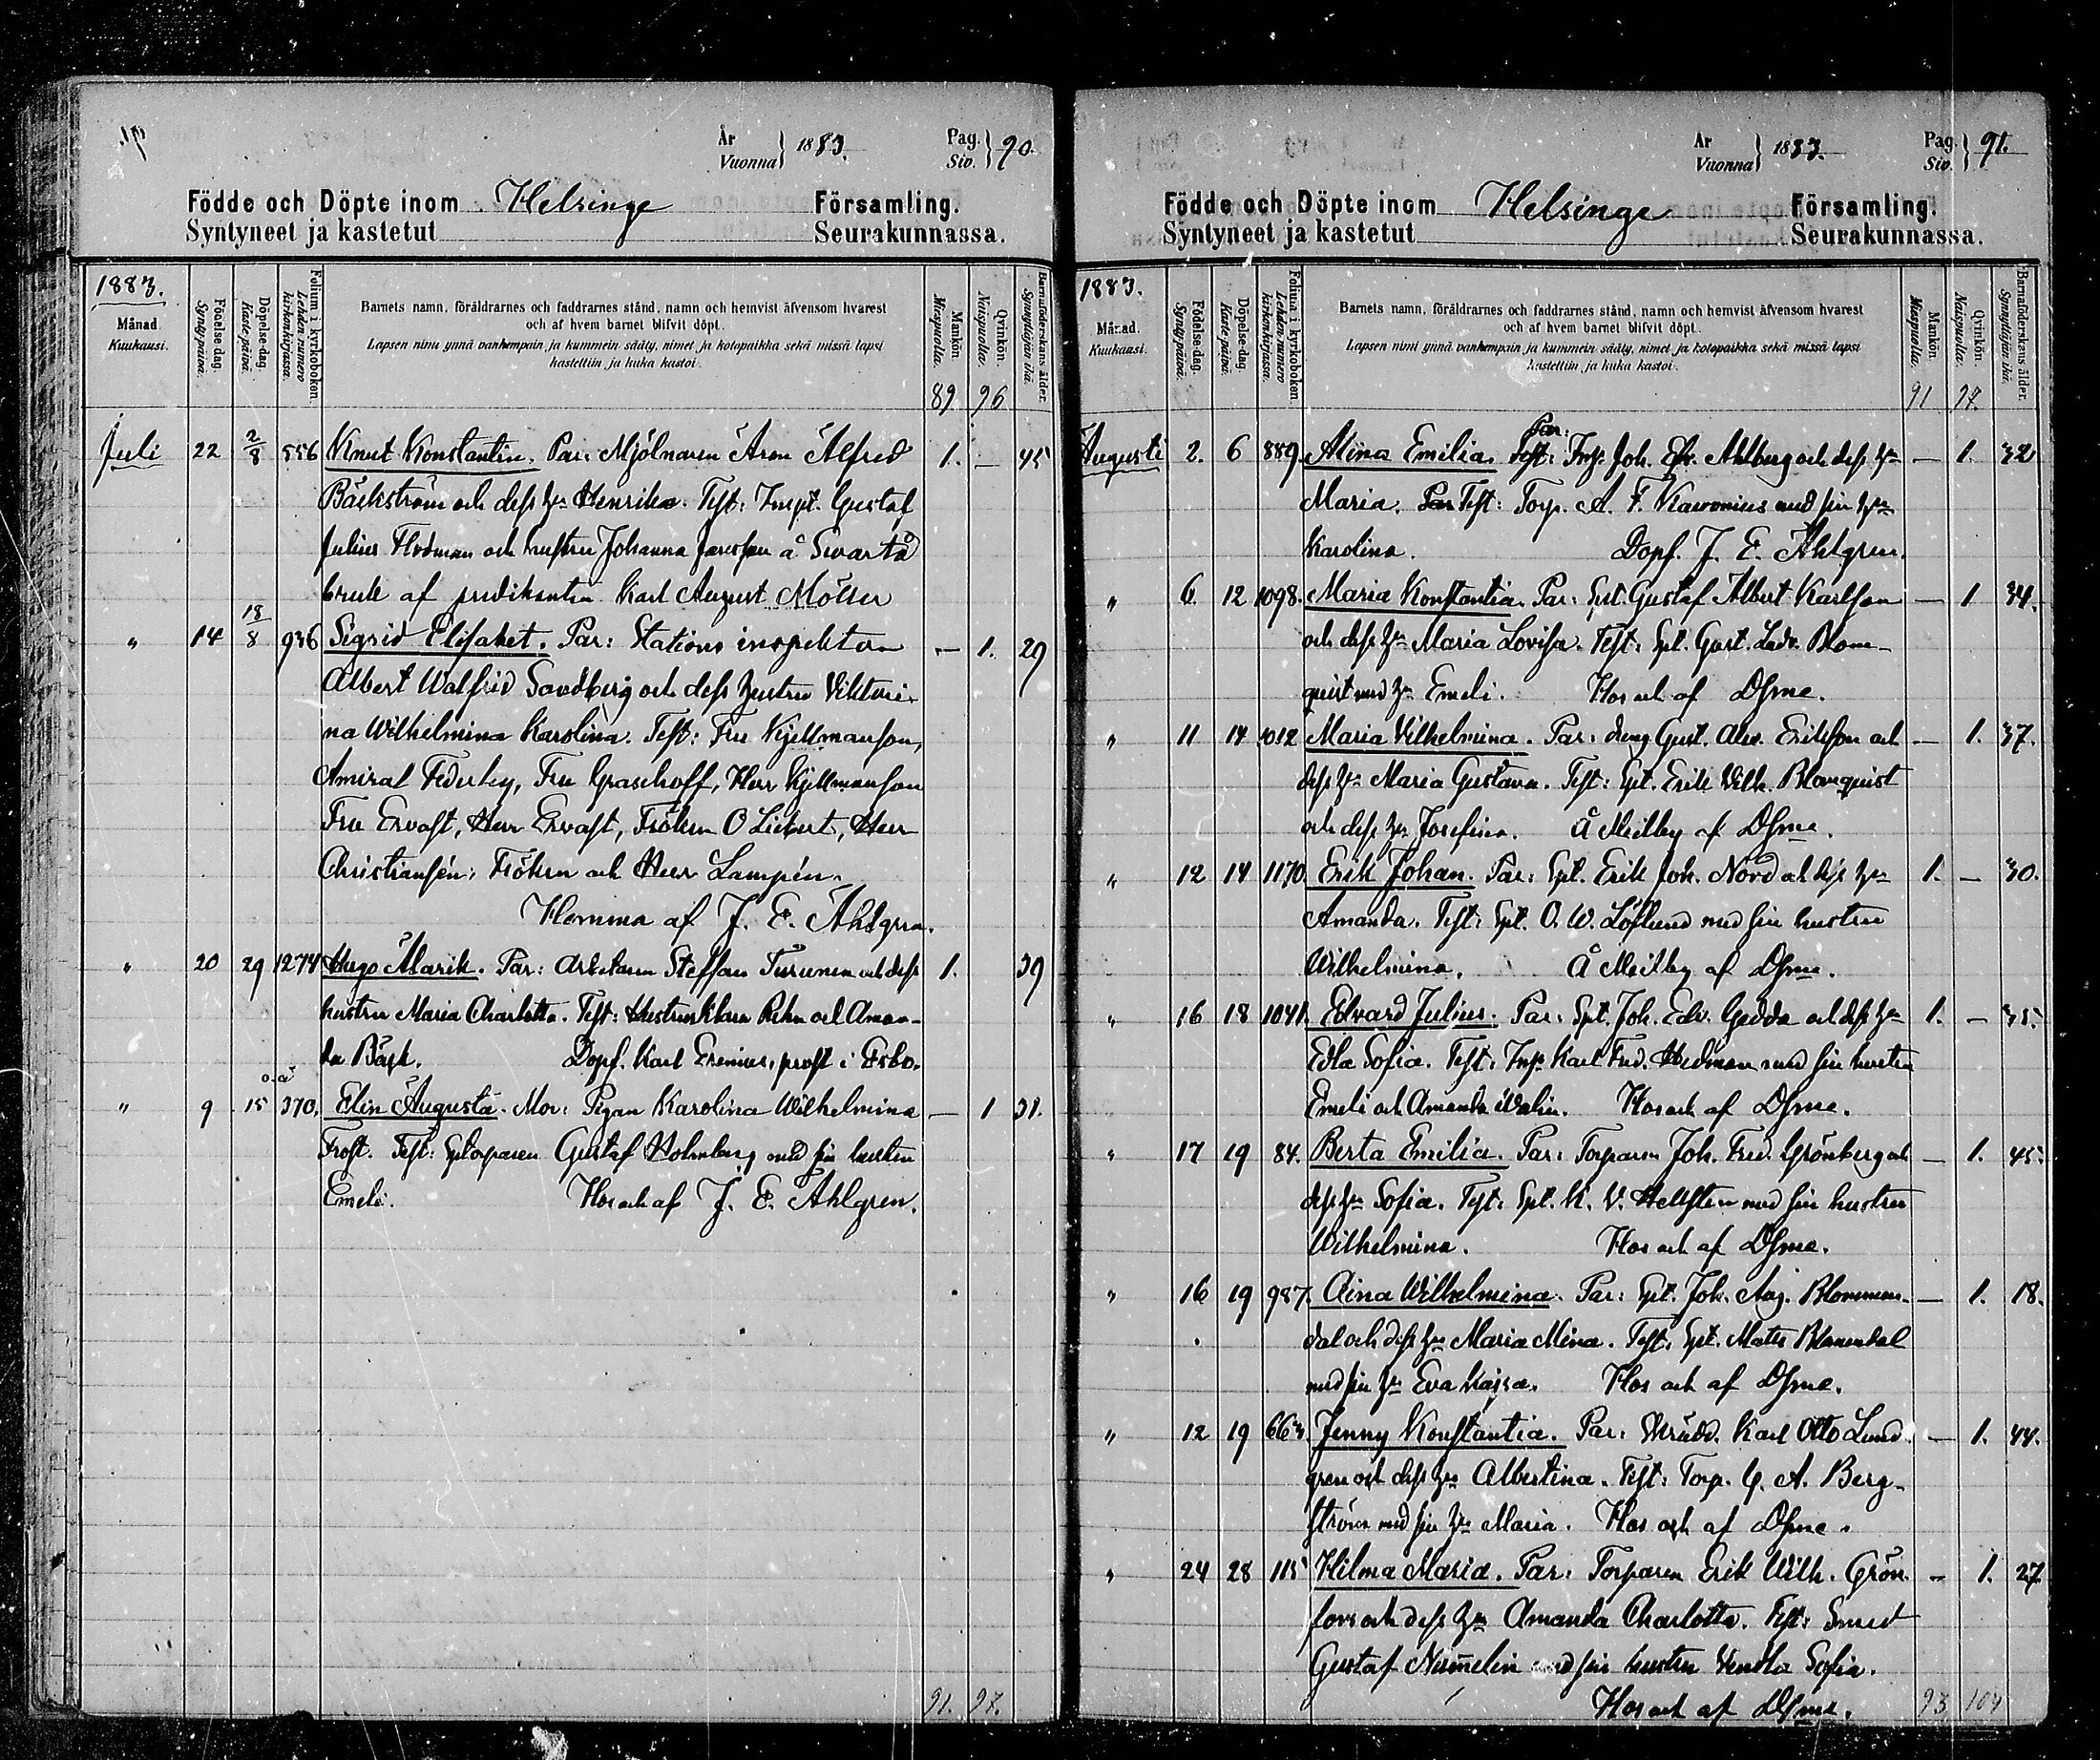 År
Vuonna } 1883. Pag.
Siv. } 90.
Födde och Döpte inom Helsinge Församling.
Syntyneet ja kastetut Seurakunnassa.
1883.
Månad.
Kuukausi.
Födelse-dag.
Syntypäivä.
Döpelse-dag.
Kastepäivä.
Folium i kyrkoboken.
Lehden numero kirkonkirjassa.
Barnets namn, föräldrarnes och faddrarnes stånd, namn och hemvist äfvensom hvarest
och af hvem barnet blifvit döpt.
Lapsen nimi ynnä vanhempain ja kummein sääty, nimet ja kotopaikka sekä missä lapsi
kastettiin ja kuka kastoi.
Mankön.
Miespuolta.
Qvinkön.
Naispuolta.
Barnaföderskans ålder.
Synnyttäjän ikä.
89. 96
Juli 22 2/8 556 Knut Konstantin. Par: Mjölnaren Aron Alfred 1. — 45
Bäckström och dess hu Henrika. Test: Inspt. Gustaf
Julius Flodman och hustru Johanna å Svartå
bruk af predikanten Karl August Möller
" 14 18/8 936 Sigrid Elisabet. Par: Stations inspektoren — 1. 29
Albert Walfrid Sandberg och dess hustru Viktori-
na Wilhelmina Karolina. Test: Fru Kjellmanson,
Amiral Federley, Fru Graschoff, Herr Kjellmanson
Fru Ervast, Herr Ervast, Fröken O Liebert, Herr
Christiansén, Fröken och Herr Lampén.
Hemma af J. E. Ahlgren.
" 20 29 1274 Hugo Alarik. Par: Arbetaren Steffan Turunen och dess 1. 39
hustru Maria Charlotta. Test: Hustru Klara Rehn och Aman-
da Bäck. Döpf. Karl Erenius, prost i Esbo.
o.ä
" 9 15 370. Elin Augusta. Mor: Pigan Karolina Wilhelmina — 1 31.
Frost. Test: Sptorparen Gustaf Holmberg med sin hustru
Emeli. Hos och af J. E. Ahlgren.
91. 97.
År
Vuonna } 1883. Pag.
Siv. } 91.
Födde och Döpte inom Helsinge Församling.
Syntyneet ja kastetut Seurakunnassa.
1883.
Månad.
Kuukausi.
Födelse-dag.
Syntypäivä.
Döpelse-dag.
Kastepäivä.
Folium i kyrkoboken.
Lehden numero kirkonkirjassa.
Barnets namn, föräldrarnes och faddrarnes stånd, namn och hemvist äfvensom hvarest
och af hvem barnet blifvit döpt.
Lapsen nimi ynnä vanhempain ja kummein sääty, nimet ja kotopaikka sekä missä lapsi
kastettiin ja kuka kastoi.
Mankön.
Miespuolta.
Qvinkön.
Naispuolta.
Barnaföderskans ålder.
Synnyttäjän ikä.
91 97.
Par:
Augusti 2. 6 889 Alina Emilia. Test: Inhs. Joh. Edv. Ahlberg och dess hu — 1. 32
Maria. Par Test: Torp. A. F. Kavonius med sin hu
Karolina. Döpf. J. E. Ahlgren.
" 6. 12 1098. Maria Konstantia. Par: Spt. Gustaf Albert Karlson — 1 34.
och dess hu Maria Lovisa. Test: Spt. Gust. Ludv. Blom-
quist med hu Emeli. Hos och af Dsme.
" 11 14 1012 Maria Vilhelmina. Par: dreng Gust. Alex. Erikson och — 1. 37.
dess hu Maria Gustava. Test: Spt. Erik Vilh. Blomquist
och dess hu Josefina. Å Meilby af Dsme.
" 12 14 1170 Erik Johan. Par: Spt. Erik Joh. Nord och dess hu 1. — 30.
Amanda. Test: Spt. O. W. Löflund med sin hustru
Wilhelmina. Å Meilby af Dsme.
" 16 18 1041. Edvard Julius. Par: Spt. Joh. Edv. Gedda och dess hu 1. — 35.
Edla Sofia. Test: Inhs. Karl Fred. Hedman med sin hustru
Emeli och Amanda Walin. Hos och af Dsme.
" 17 19 84. Berta Emilia. Par: Torparen Joh. Fred. Grönberg och — 1. 45.
dess hu Sofia. Test: Spt. K. V. Hellsten med sin hustru
Wilhelmina. Hos och af Dsme.
" 16 19 987. Aina Wilhelmina. Par: Spt. Joh. Aug. Blommen- — 1. 18.
dal och dess hu Maria Mina. Test: Spt. Matts Blomendal
med sin hu Eva Kajsa. Hos och af Dsme.
" 12 19 663. Jenny Konstantia. Par: Skrädd. Karl Otto Lund- — 1. 44.
gren och dess hu Albertina. Test: Torp. G. A. Berg-
ström med sin hu Maria. Hos och af Dsme.
" 24 28 115 Hilma Maria. Par: Torparen Erik Wilh. Grön- — 1. 27
fors och dess hu Amanda Charlotta. Test: Smed
Gustaf Numelin med sin hustru Vendla Sofia.
Hos och af Dsme. 93 104